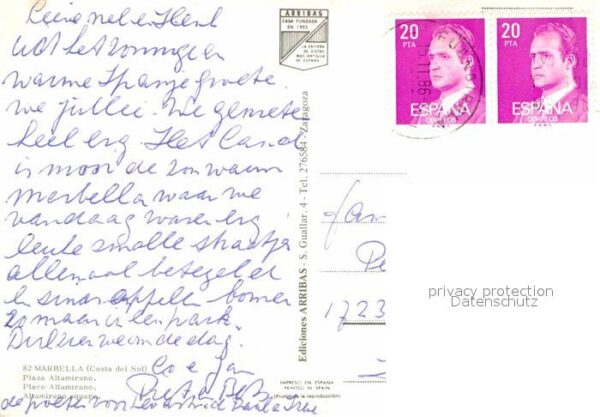 Uit het zonnige en
warme Spanje groeten
we jullie. We genieten
heel erg. Het land
is mooi de zon warm
Marbella waar we
vandaag waren erg
leuke smalle straatjes
allemaal betegeld
en sinasappelen bomen
zo maar in een park.
de groeten van
82 MARBELLA (Costa del Sol)
Plaza Altamirano.
Place Altamirano.
Altamirano square.
ARRIBAS
CASA FUNDADA
EN 1905
LA EDITORA
DE VISTAS
MAS ANTIGUA
DE ESPAÑA
Ediciones ARRIBAS - S. Guallar, 4 - Tel. 276584 - Zaragoza
IMPRESO EN ESPAÑA
PRINTED IN SPAIN
(Prohibida la reproducción)
20
PTA
ESPAÑA
CORREOS
20
PTA
ESPAÑA
CORREOS
Fam
1723
privacy protection
Datenschutz